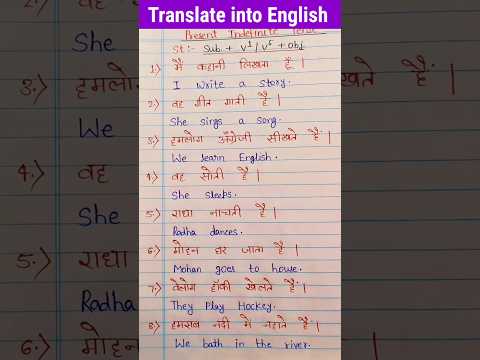 Translate into English
Present Indefinite Tense
St:- Sub. + V¹/V⁵ + obj.
1.) मैं कहानी लिखता हूँ |
I write a story.
2.) वह गीत गाती है |
She sings a song.
3.) हमलोग अँग्रेजी सीखते हैं |
We learn English.
4.) वह सोती है |
She sleeps.
5.) राधा नाचती है |
Radha dances.
6.) मोहन घर जाता है |
Mohan goes to house.
7.) वेलोग हॉकी खेलते हैं |
They Play Hockey.
8.) हमसब नदी मे नहाते हैं |
We bath in the river.